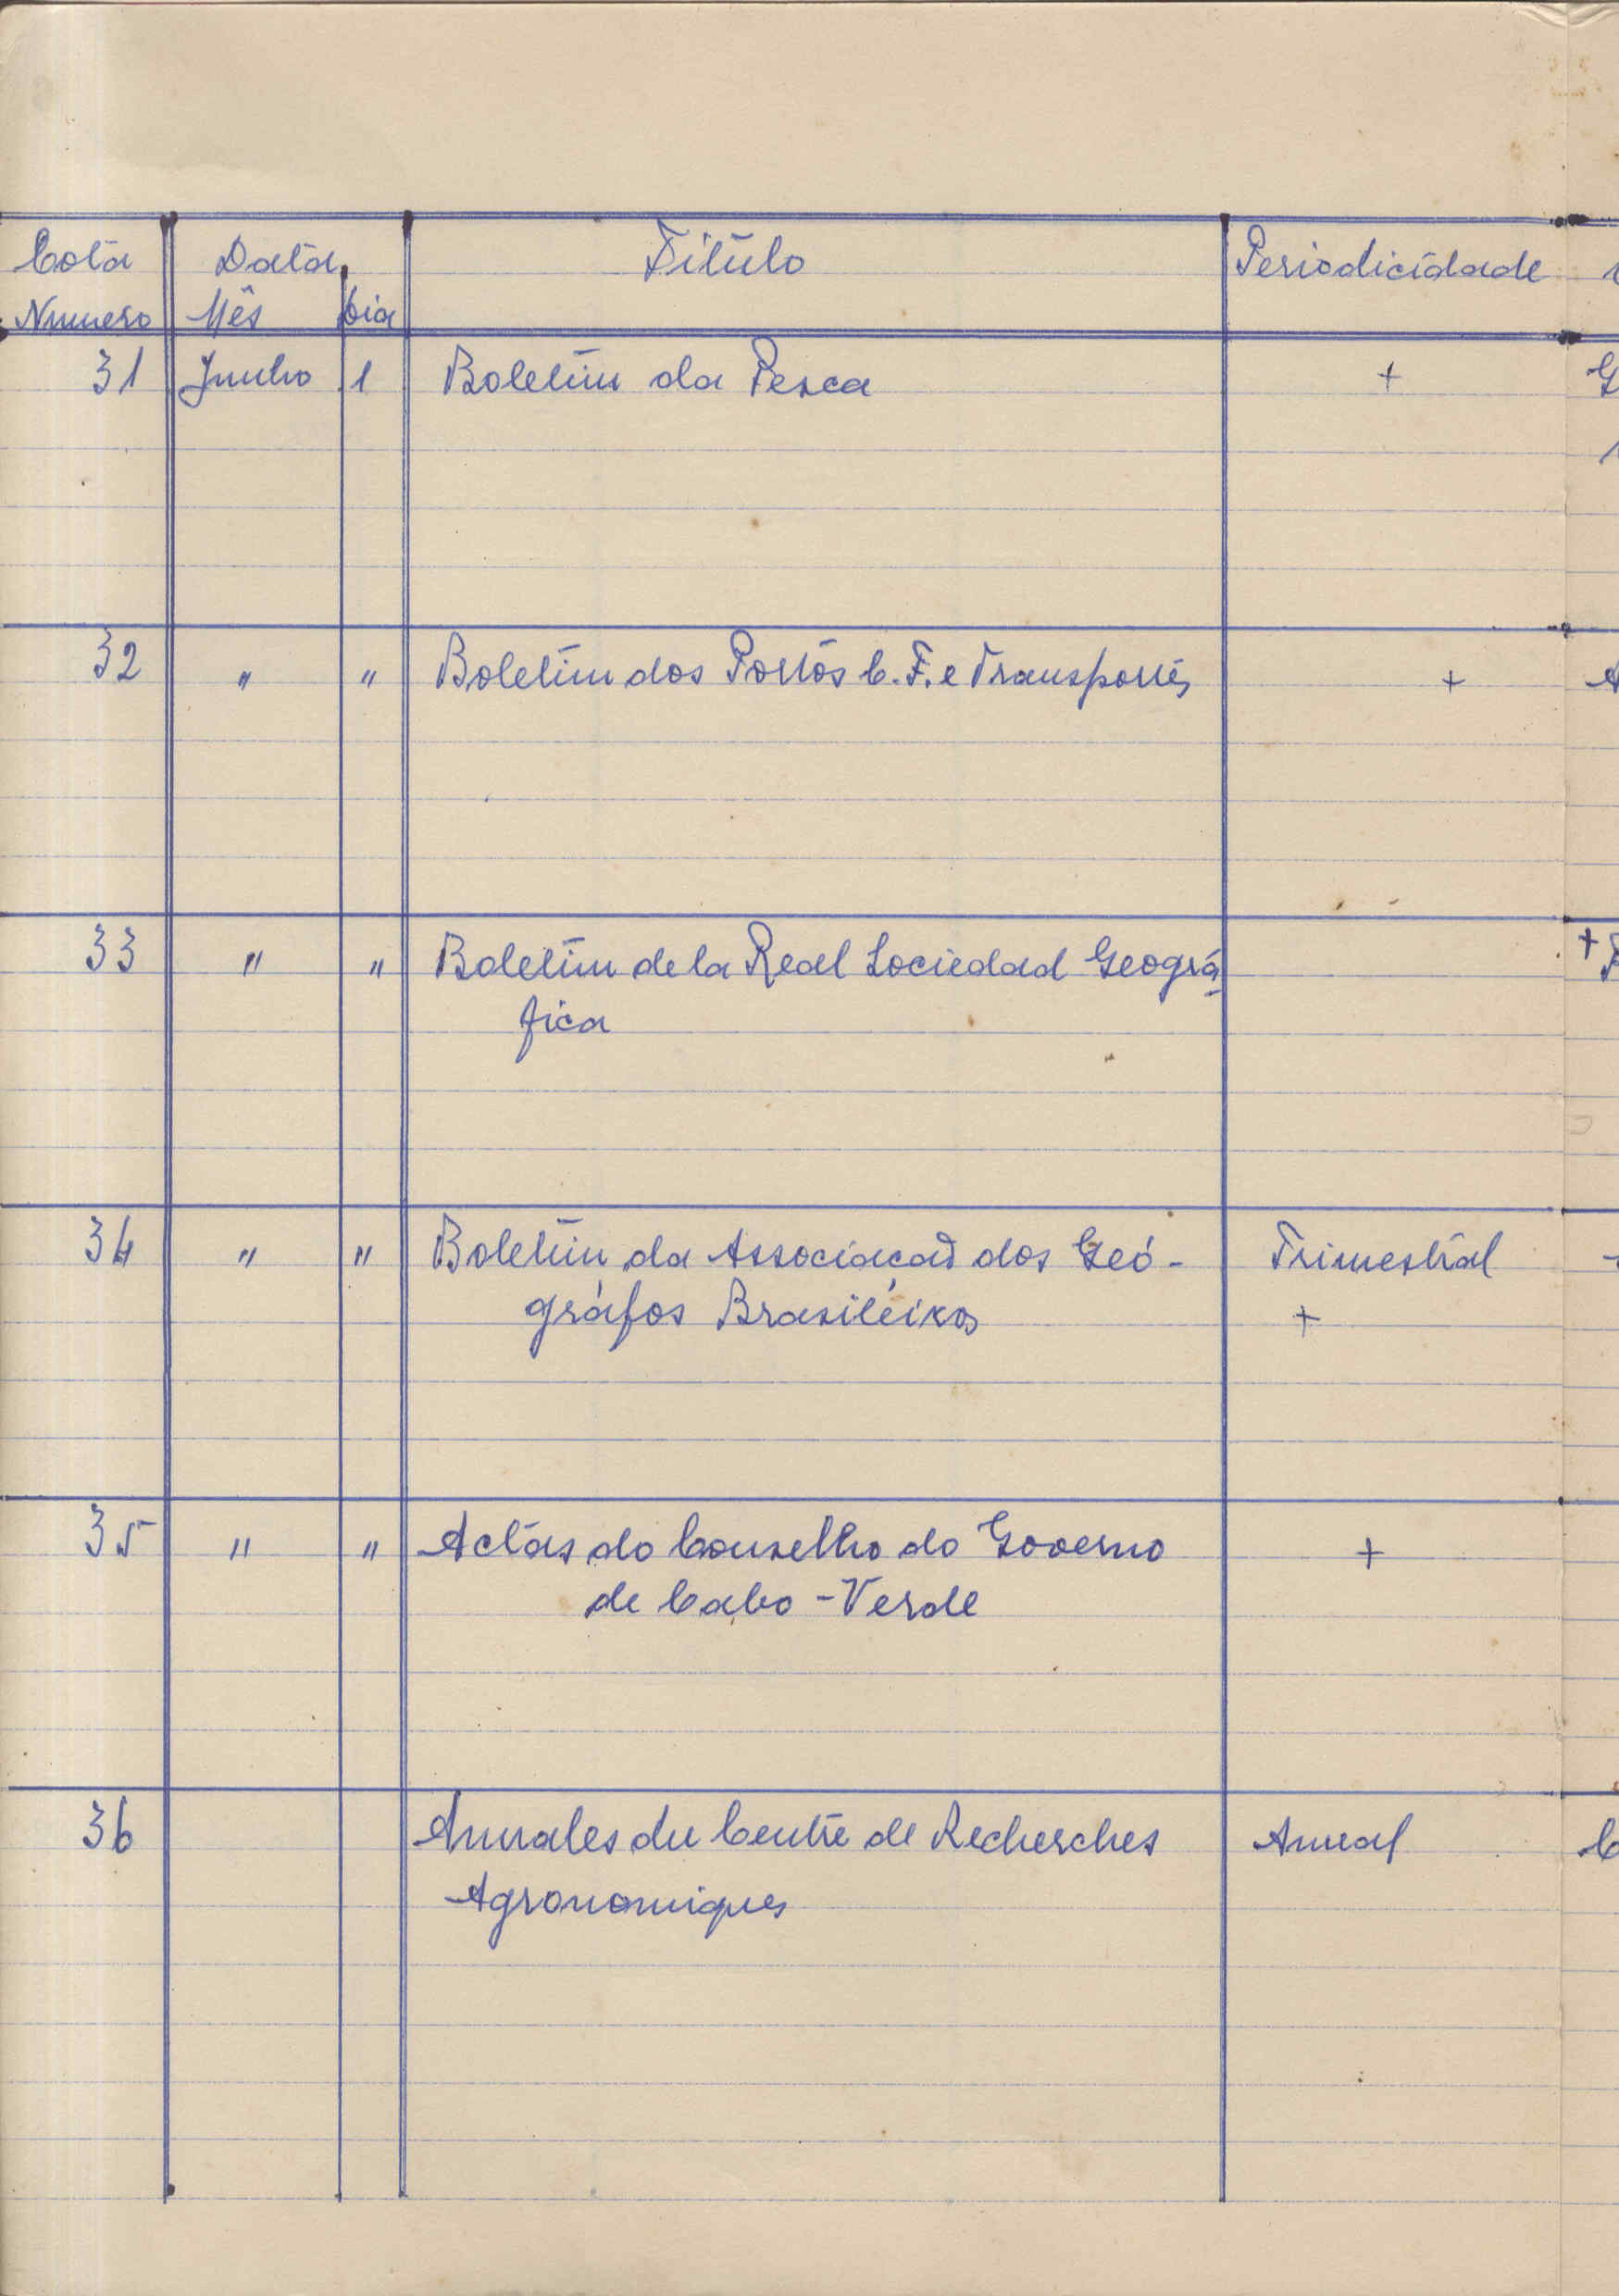 Cota Data Título Periodicidade
Numero Mês Dia
31 Junho 1 Boletim da Pesca +
32 " " Boletim dos Portos C. F. e Transportes +
33 " " Boletim de la Real Sociedad Geográ-
fica
34 " " Boletim da Associação dos Geó- Trimestral
gráfos Brasiléiros +
35 " " Actas do Conselho do Governo +
de Cabo-Verde
36 Annales du Centre de Recherches Anual
Agronomiques